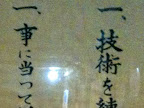 一、技術を練
一、事に当って